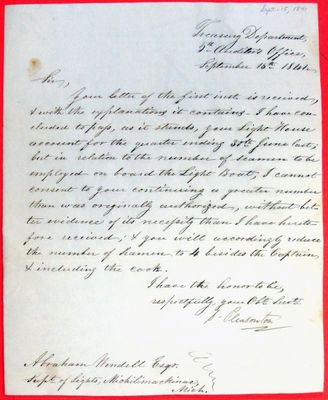 Sept. 15, 1841
Treasury Department,
5th Auditor's Office,
September 15th 1841.
Sir,
Your letter of the first inst. is received,
& with the explanations it contains I have con-
cluded to pass, as it stands, your Light House
account for the quarter ending 30th June last;
but in relation to the number of seamen to be
employed on board the Light Boats, I cannot
consent to your continuing a greater number
than was originally authorized, without bet-
ter evidence of its necessity than I have hereto-
fore received; & you will accordingly reduce
the number of seamen to 4 besides the Captain,
& including the cook.
I have the honor to be,
respectfully, your Obt. Servt.
S. Pleasonton
Abraham Wendell Esqr.
Supt. of Lights, Michilimackinac,
Mich.